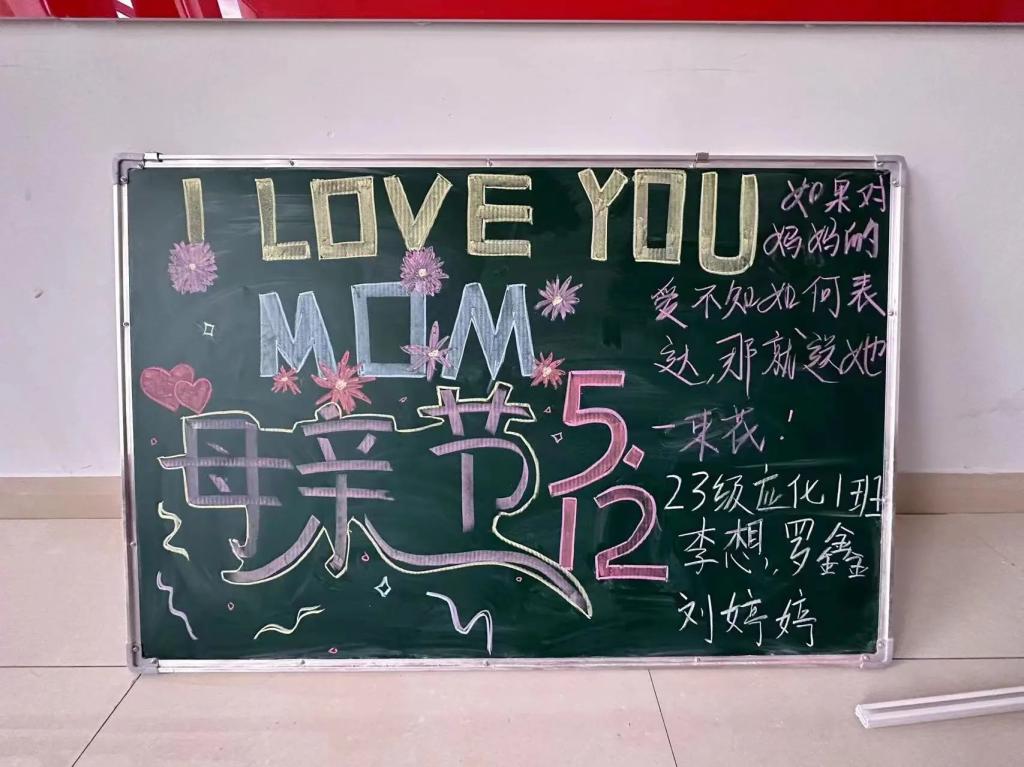 I LOVE YOU
MOM
母亲节
5.
12
如果对
妈妈的
爱不知如何表
达,那就送她
一束花!
23级应化1班
李想,罗鑫
刘婷婷